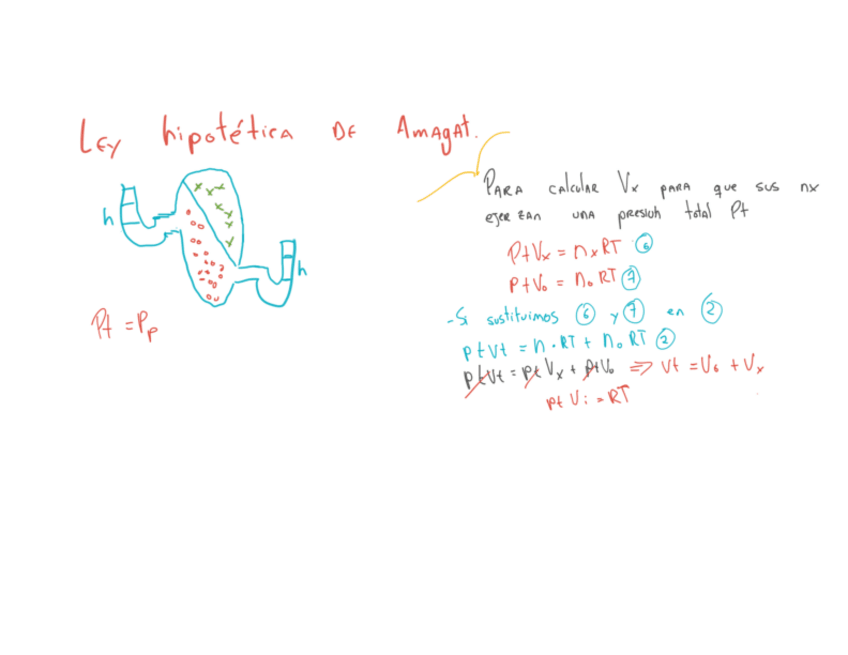 LEY hipotética DE AMAGAT.
h
h
Pt = Pp
PARA calcular Vx para que sus nx
ejerzan una presión total Pt
PtVx = nxRT 6
PtVo = no RT 7
- Si sustituimos 6 y 7 en 2
ptVt = n·RT + no RT 2
ptVt = pt Vx + ptVo ⇒ Vt = Vo + Vx
pt Vi = RT